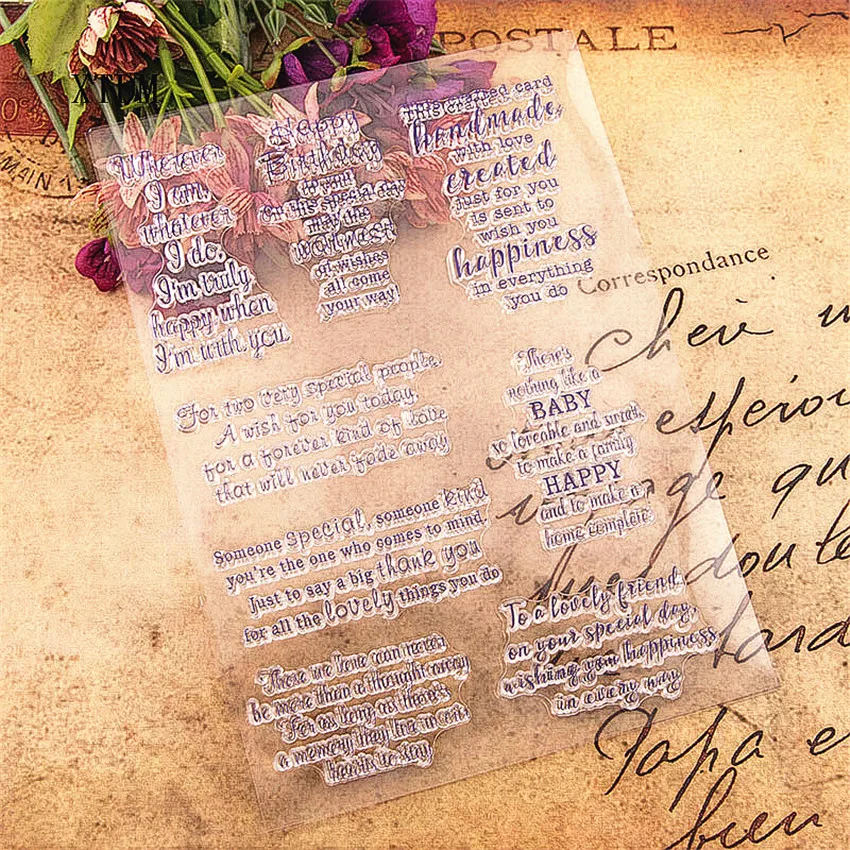 POSTALE
XNDM
MAIN
Wherever
I am,
whatever
I do,
I'm truly
happy when
I'm with you
Happy
Birthday
to you!
On this special day
may the
warmest
of wishes
all come
your way!
This crafted card
handmade,
with love
created
just for you
is sent to
wish you
happiness
in everything
you do
Correspondance
For two very special people
A wish for you today,
for a forever kind of love
that will never fade away
There's
nothing like a
BABY
so loveable and small,
to make a family
HAPPY
and to make a
home complete.
Someone special, someone kind
you're the one who comes to mind.
Just to say a big thank you
for all the lovely things you do
To a lovely friend,
on your special day,
wishing you happiness
in every way
Those we love can never
be more than a thought away
For as long as there's
a memory they live in our
hearts to stay
Papa